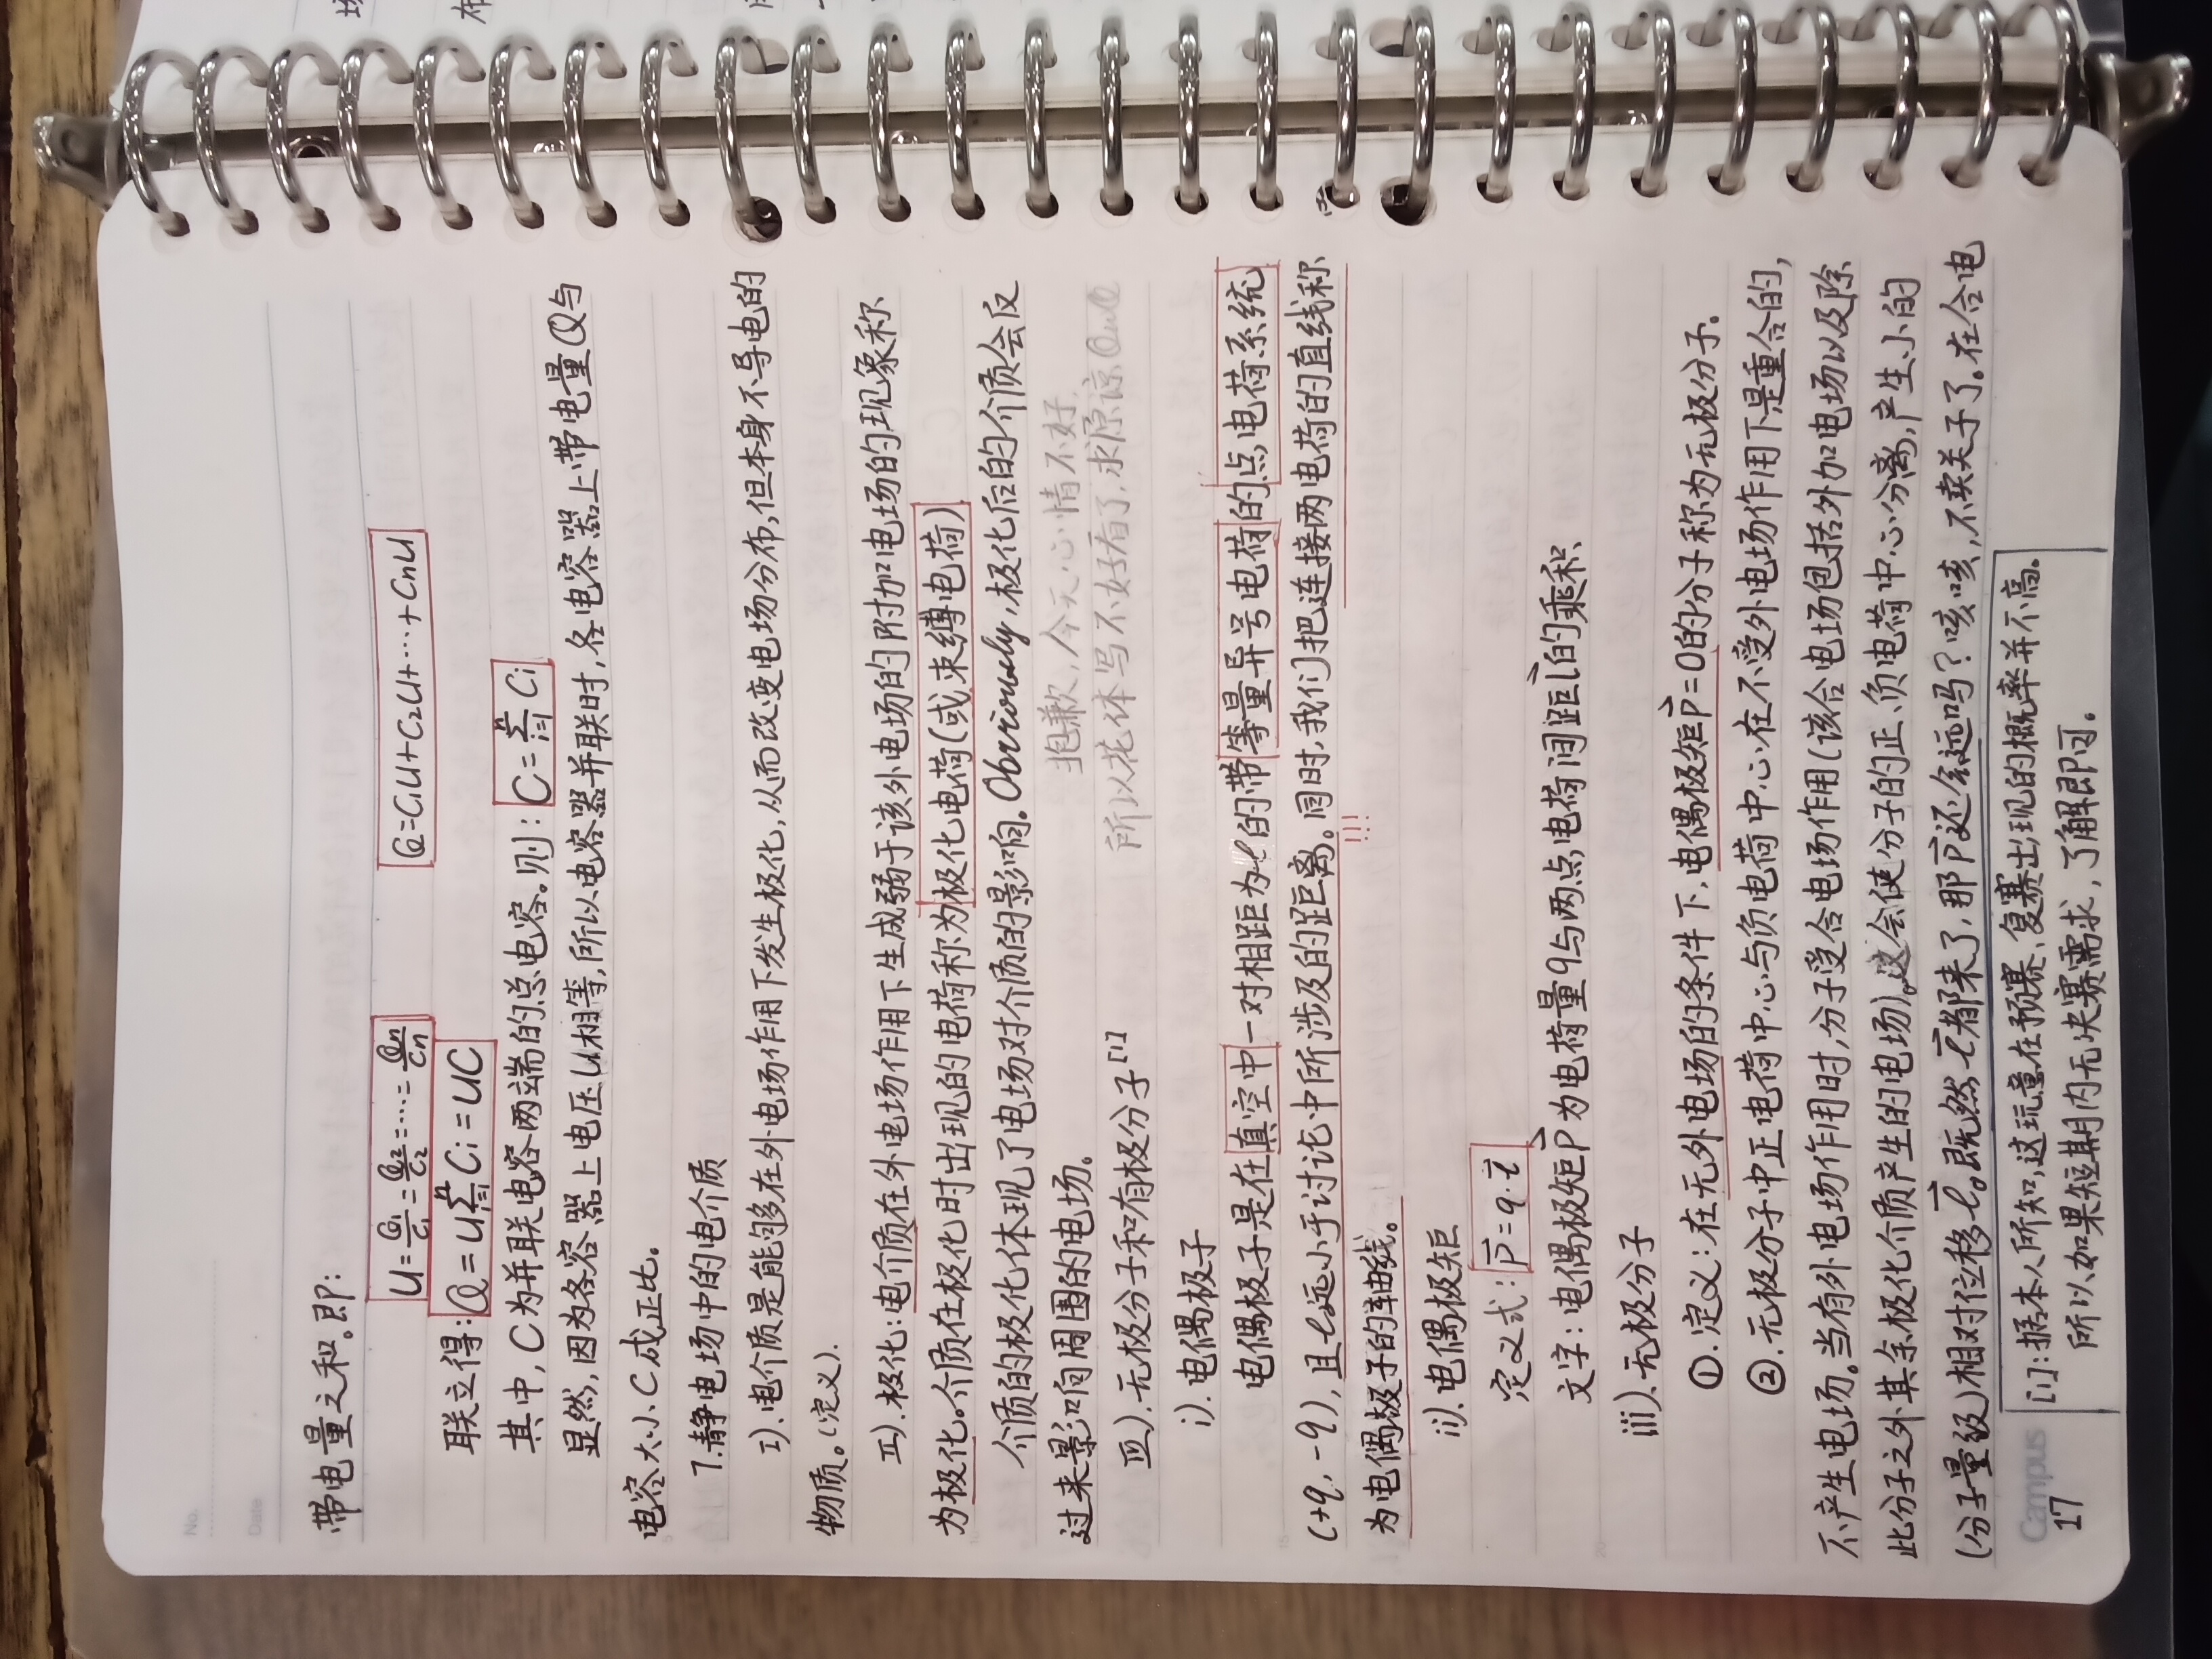 No.
Date
带电量之和。即:
U=Q₁/C₁=Q₂/C₂=…=Qn/Cn Q=C₁U+C₂U+…+CnU
联立得: Q=U∑ⁿᵢ₌₁Ci=UC
其中, C为并联电容两端的总电容。则: C=∑ⁿᵢ₌₁Ci
显然,因为各容器上电压U相等,所以电容器并联时,各电容器上带电量Q与
电容大小C成正比。
7.静电场中的电介质
I).电介质是能够在外电场作用下发生极化,从而改变电场分布,但本身不导电的
物质。(定义).
II).极化:电介质在外电场作用下生成弱于该外电场的附加电场的现象称
为极化。介质在极化时出现的电荷称为极化电荷(或束缚电荷)
介质的极化体现了电场对介质的影响。Obviously,极化后的介质会反
过来影响周围的电场。
抱歉,今天心情不好,
所以花体写不好看了,求原谅QwQ
III).无极分子和有极分子[1]
i).电偶极子
电偶极子是在真空中一对相距为ℓ的带等量异号电荷的点电荷系统
(+q,-q),且ℓ远小于讨论中所涉及的距离。同时,我们把连接两电荷的直线称
为电偶极子的轴线。
!!!
ii).电偶极矩
定义式: p⃗=q·l⃗
文字:电偶极矩p⃗为电荷量q与两点电荷间距l⃗的乘积
iii).无极分子
①.定义:在无外电场的条件下,电偶极矩p⃗=0的分子称为无极分子.
②.无极分子中正电荷中心与负电荷中心在不受外电场作用下是重合的,
不产生电场。当有外电场作用时,分子受合电场作用(该合电场包括外加电场以及除
此分子之外其余极化介质产生的电场)。这会使分子的正、负电荷中心分离,产生小的
(分子量级)相对位移l⃗。既然l⃗都来了,那p⃗还会远吗?咳咳,不卖关子了.在合电
[1]:据本人所知,这玩意在预赛、复赛出现的概率并不高。
所以如果短期内无决赛需求,了解即可.
Campus
17